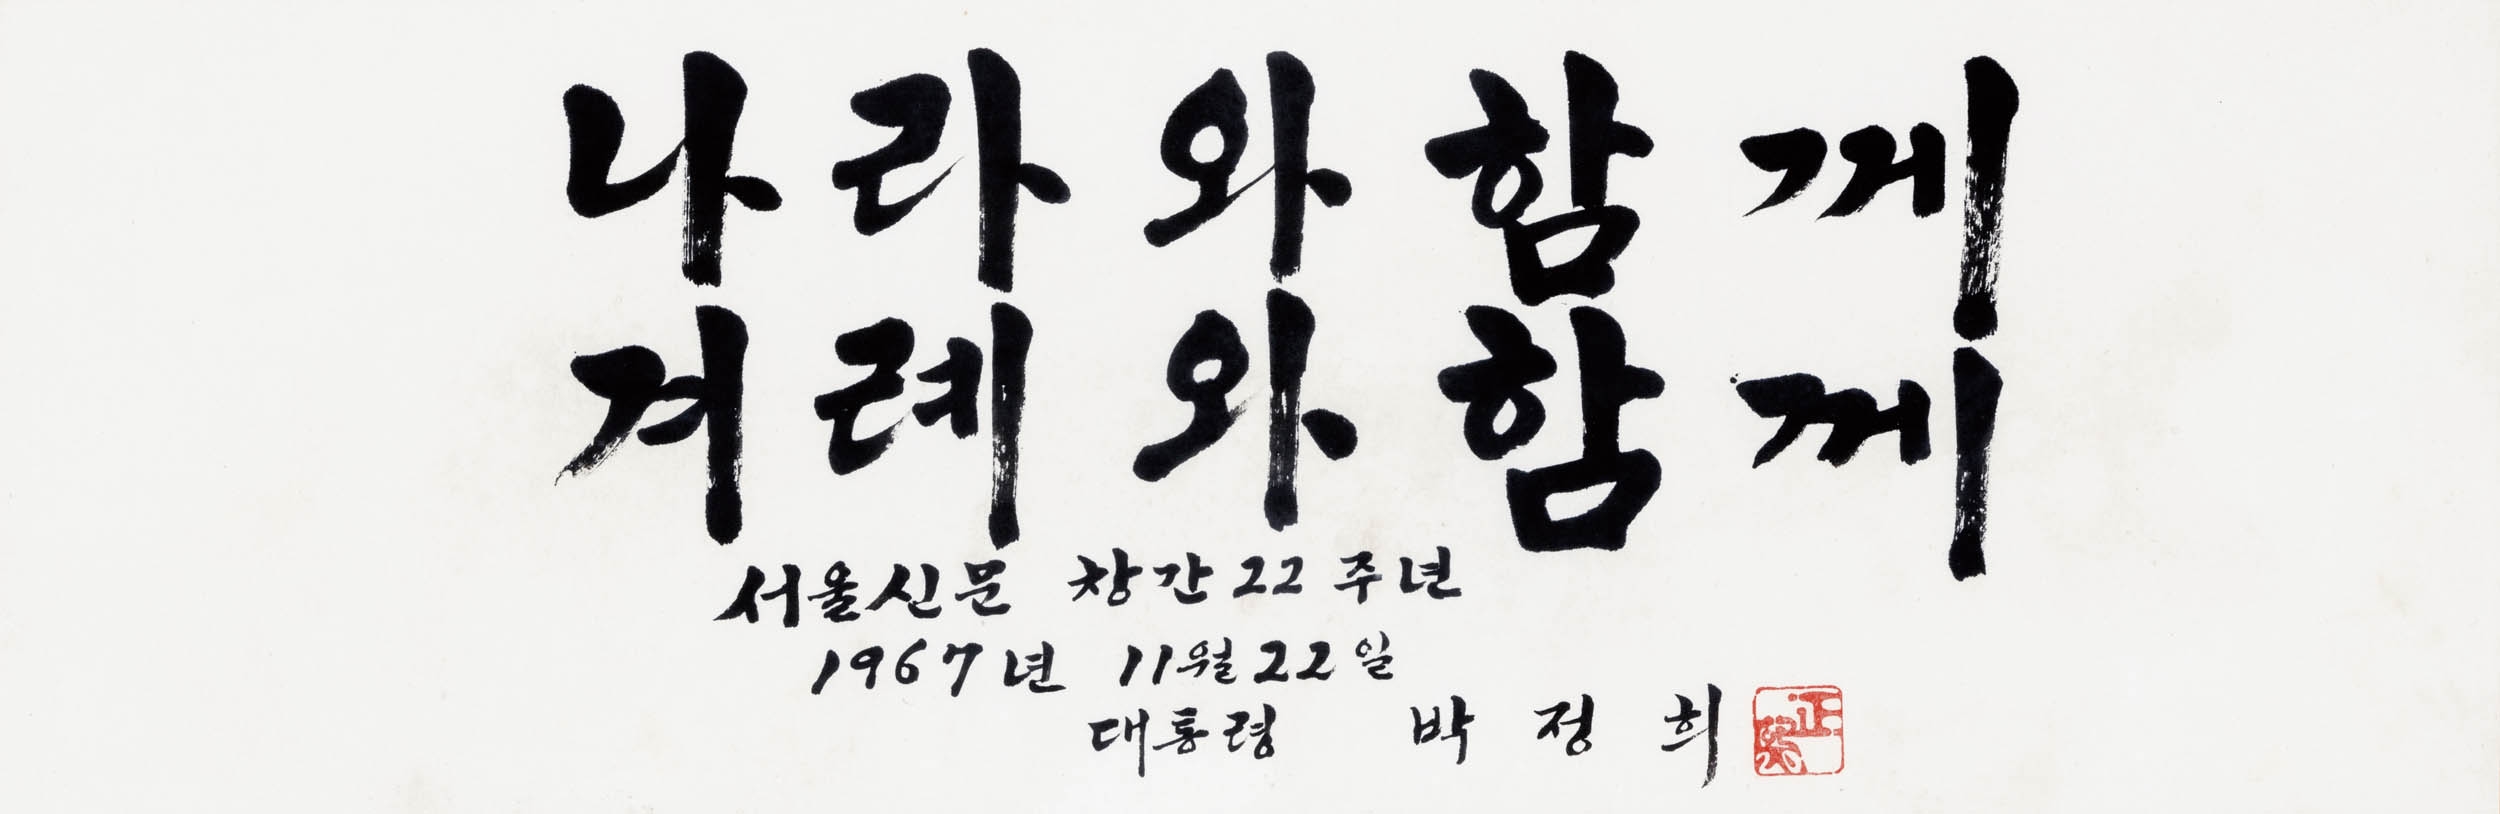 나라와 함께
겨레와 함께
서울신문 창간 22 주년
1967년 11월 22일
대통령 박정희